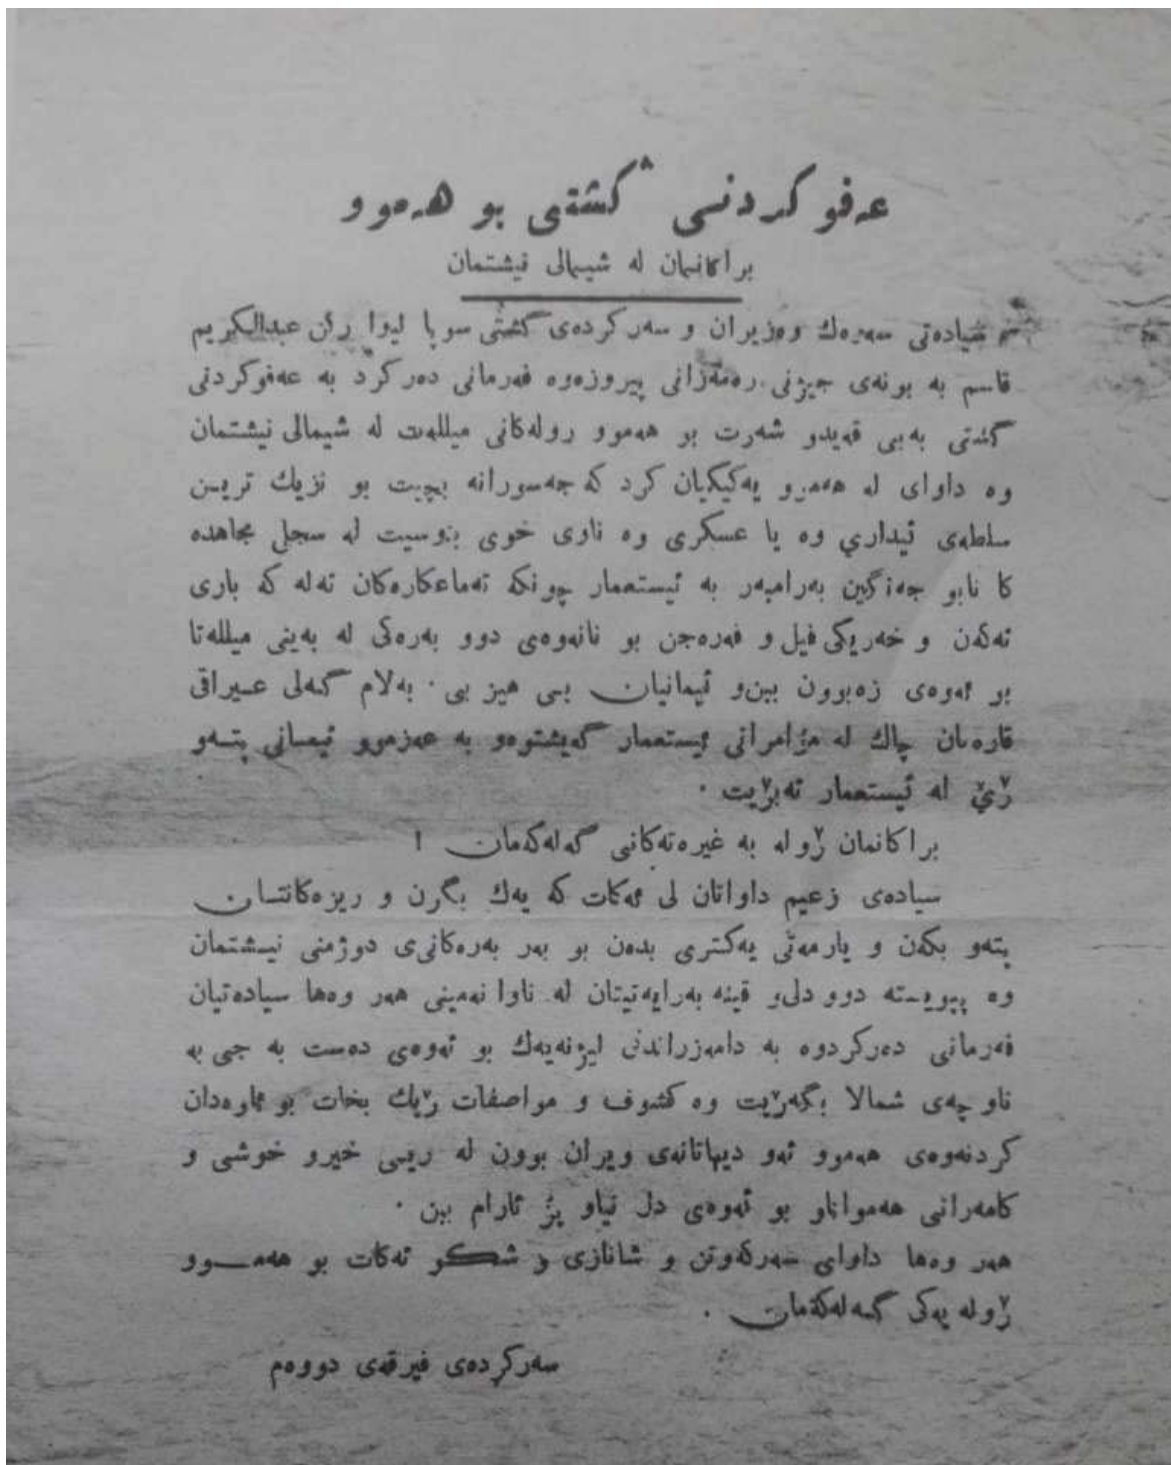 عەفو کردنی گشتی بو هەموو
براکانمان لە شیمالی نیشتمان
سیادەتی سەرەك وەزیران و سەرکردەی گشتی سوپا لیوا رکن عبدالکریم
قاسم بە بونەی جیژنی رەمەزانی پیروزەوە فەرمانی دەرکرد بە عەفوکردنی
گشتی بەبی قەیدو شەرت بو هەموو رولەکانی میللەت لە شیمالی نیشتمان
وە داوای لە هەموو یەکیکیان کرد کە جەسورانە بچیت بو نزیك تریـن
سلطەی ئیداري وە یا عسکری وە ناوی خوی بنوسیت لە سجلی مجاهدە
کا نابو جەنگین بەرامبەر بە ئیستعمار چونکە تەماعکارەکان تەلە کە باری
ئەکەن و خەریکی فیل و فەرەجن بو نانەوەی دوو بەرەکی لە بەینی میللەتا
بو ئەوەی زەبوون ببن‌و ئیمانیان بـی هیز بی ٠ بەلام گـەلی عـیراقی
قارەمان چاك لە مؤامراتی ئیستعمار گەیشتوەو بە عەزموو ئیمـانی پتـەو
ڕێ لە ئیستعمار ئەبڕیت ٠
براکانمان ڕولە بە غیرەتەکانی گەلەکەمان !
سیادەی زعیم داواتان لی ئەکات کە یەك بگرن و ریزەکانتـان
پتەو بکەن و یارمەتی یەکتری بدەن بو بەر بەرەکانی‌ی دوژمنی نیـشتمان
وە پیویـستە دوو دلی‌و قینە بەرایەتیتان لە ناوا نەمینی هەر وەها سیادەتیان
فەرمانی دەرکردوە بە دامەزراندنی لیژنەیەك بو ئەوەی دەست بە جی بە
ناوچەی شمالا بگەڕیت وە کشوف و مواصفات ڕیك بخات بو ئاوەدان
کردنەوەی هەموو ئەو دیهاتانەی ویران بوون لە ریـی خیرو خوشی و
کامەرانی هەمواناو بو ئەوەی دل نیاو پڕ ئارام ببن ٠
هەر وەها داوای سەرکەوتن و شانازی و شکـو ئەکات بو هەمــوو
ڕولە یەکی گـەلەکەمان ٠
سەرکردەی فیرقەی دووەم